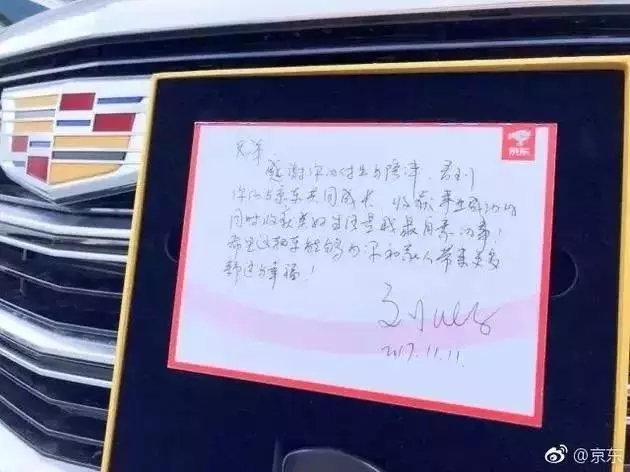 京东
兄弟
感谢你的付出与陪伴，看到
你们与京东共同成长，收获事业成功的
同时收获美好生活是我最自豪的事！
希望这辆车能够为你和家人带来更多
舒适与幸福！
2017.11.11.
@京东